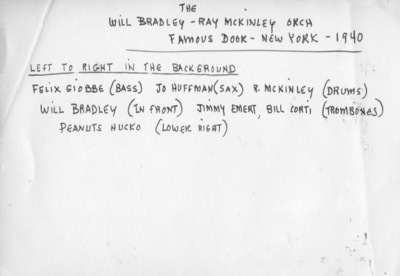 THE
WILL BRADLEY - RAY MCKINLEY ORCH
FAMOUS DOOR - NEW YORK - 1940
LEFT TO RIGHT IN THE BACKGROUND
FELIX GIOBBE (BASS) JO HUFFMAN (SAX) R. MCKINLEY (DRUMS)
WILL BRADLEY (IN FRONT) JIMMY EMERT, BILL CORTI (TROMBONES)
PEANUTS HUCKO (LOWER RIGHT)